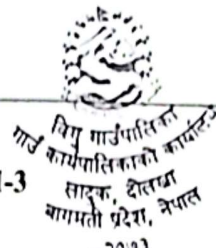 बिगु गाउँपालिका
गाउँ कार्यपालिकाको कार्यालय
1-3
दोलखा
बागमती प्रदेश, नेपाल
२०७३